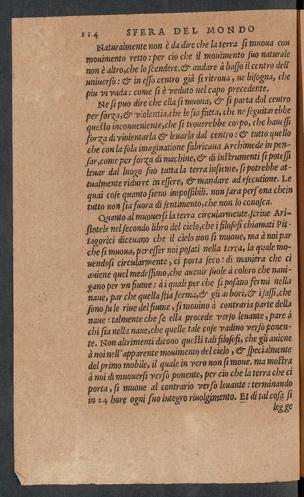 114 SFERA DEL MONDO
Naturalmente non è da dire che la terra si muoua con
mouimento retto: per cio che il mouimento suo naturale
non è altro, che lo scendere, & andare à basso il centro dell'
vniuerso: & in esso centro già si ritroua, ne bisogna, che
piu vi vada: come si è veduto nel capo precedente.
Ne si puo dire che ella si muoua, & si parta dal centro
per forza, & violentia, che le sia fatta, che ne seguitarebbe
questo inconueniente, che si trouerebbe corpo, che hauessi
forza di violentarla & leuarla dal centro: & tutto quello
che con la sola imaginatione fabricaua Archimede in pen-
sar, come per forza di machine, & di instrumenti si potessi
leuar dal luogo suo tutta la terra insieme, si potrebbe at-
tualmente ridurre in essere, & mandare ad esecutione. Le
quai cose quanto sieno impossibili, non sarà persona che in
tutto non sia fuora di sentimento, che non lo conosca.
Quanto al muouersi la terra circularmente, scriue Ari-
stotele nel secondo libro del cielo, che i filosofi chiamati Pit-
tagorici diceuano che il cielo non si muoue, ma à noi par
che si muoua, per esser noi posati nella terra, la quale mo-
uendosi circularmente, ci porta seco: di maniera che ci
auiene quel medessimo, che auenir suole à coloro che naui-
gano per vn fiume: à i quali per che si posano fermi nella
naue, par che quella stia ferma, & gli arbori, & i sassi, che
sono su le riue del fiume, si mouino à contraria parte della
naue: talmente che se ella procede verso leuante, pare à
chi sia nella naue, che quelle tai cose vadino verso ponen-
te. Non altrimenti dicono questi tali filosofi, che gli auiene
à noi nell'apparente mouimento del cielo, & spetialmente
del primo mobile, il quale in vero non si moue, ma mostra
à noi di muouersi verso ponente, per cio che la terra che ci
porta, si muoue al contrario verso leuante: terminando
in 24 hore ogni suo integro riuolgimento. Et di tal cosa si
legge